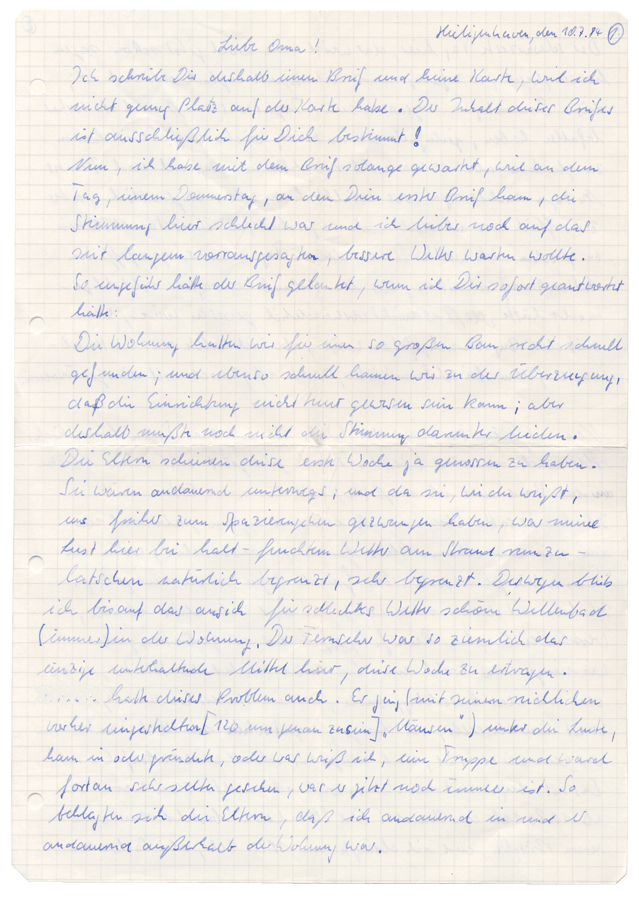 Heiligenhaven, den 18.7.84 1
Liebe Oma!
Ich schreibe Dir deshalb einen Brief und keine Karte, weil ich
nicht genug Platz auf der Karte habe. Der Inhalt dieses Briefes
ist ausschließlich für Dich bestimmt!
Nun, ich habe mit dem Brief solange gewartet, weil an dem
Tag, einem Donnerstag, an dem Dein erster Brief kam, die
Stimmung hier schlecht war und ich lieber noch auf das
seit langem vorrausgesagten, bessere Wetter warten wollte.
So ungefähr hätte der Brief gelautet, wenn ich Dir sofort geantwortet
hätte:
Die Wohnung hatten wir für einen so großen Bau recht schnell
gefunden; und ebenso schnell kamen wir zu der Überzeugung,
daß die Einrichtung nicht teuer gewesen sein kann; aber
deshalb mußte noch nicht die Stimmung darunter leiden.
Die Eltern scheinen diese erste Woche ja genossen zu haben.
Sie waren andauernd unterwegs; und da sie, wie du weißt,
uns früher zum Spazierengehen gezwungen haben, war meine
Lust hier bei kalt-feuchtem Wetter am Strand rumzu-
latschen natürlich begrenzt, sehr begrenzt. Deswegen blieb
ich bis auf das ansich für schlechtes Wetter schöne Wellenbad
(immer) in der Wohnung. Der Fernseher war so ziemlich das
einzige unterhaltende Mittel hier, diese Woche zu ertragen.
..... hatte dieses Problem auch. Er ging (mit seinen reichlichen
vorher eingeholten [120 um genau zu sein] „Mäusen“) unter die Leute,
kam in oder gründete, oder was weiß ich, eine Truppe und ward
fortan sehr selten gesehen, was er jetzt noch immer ist. So
beklagten sich die Eltern, daß ich andauernd in und N
andauernd außerhalb der Wohnung war.